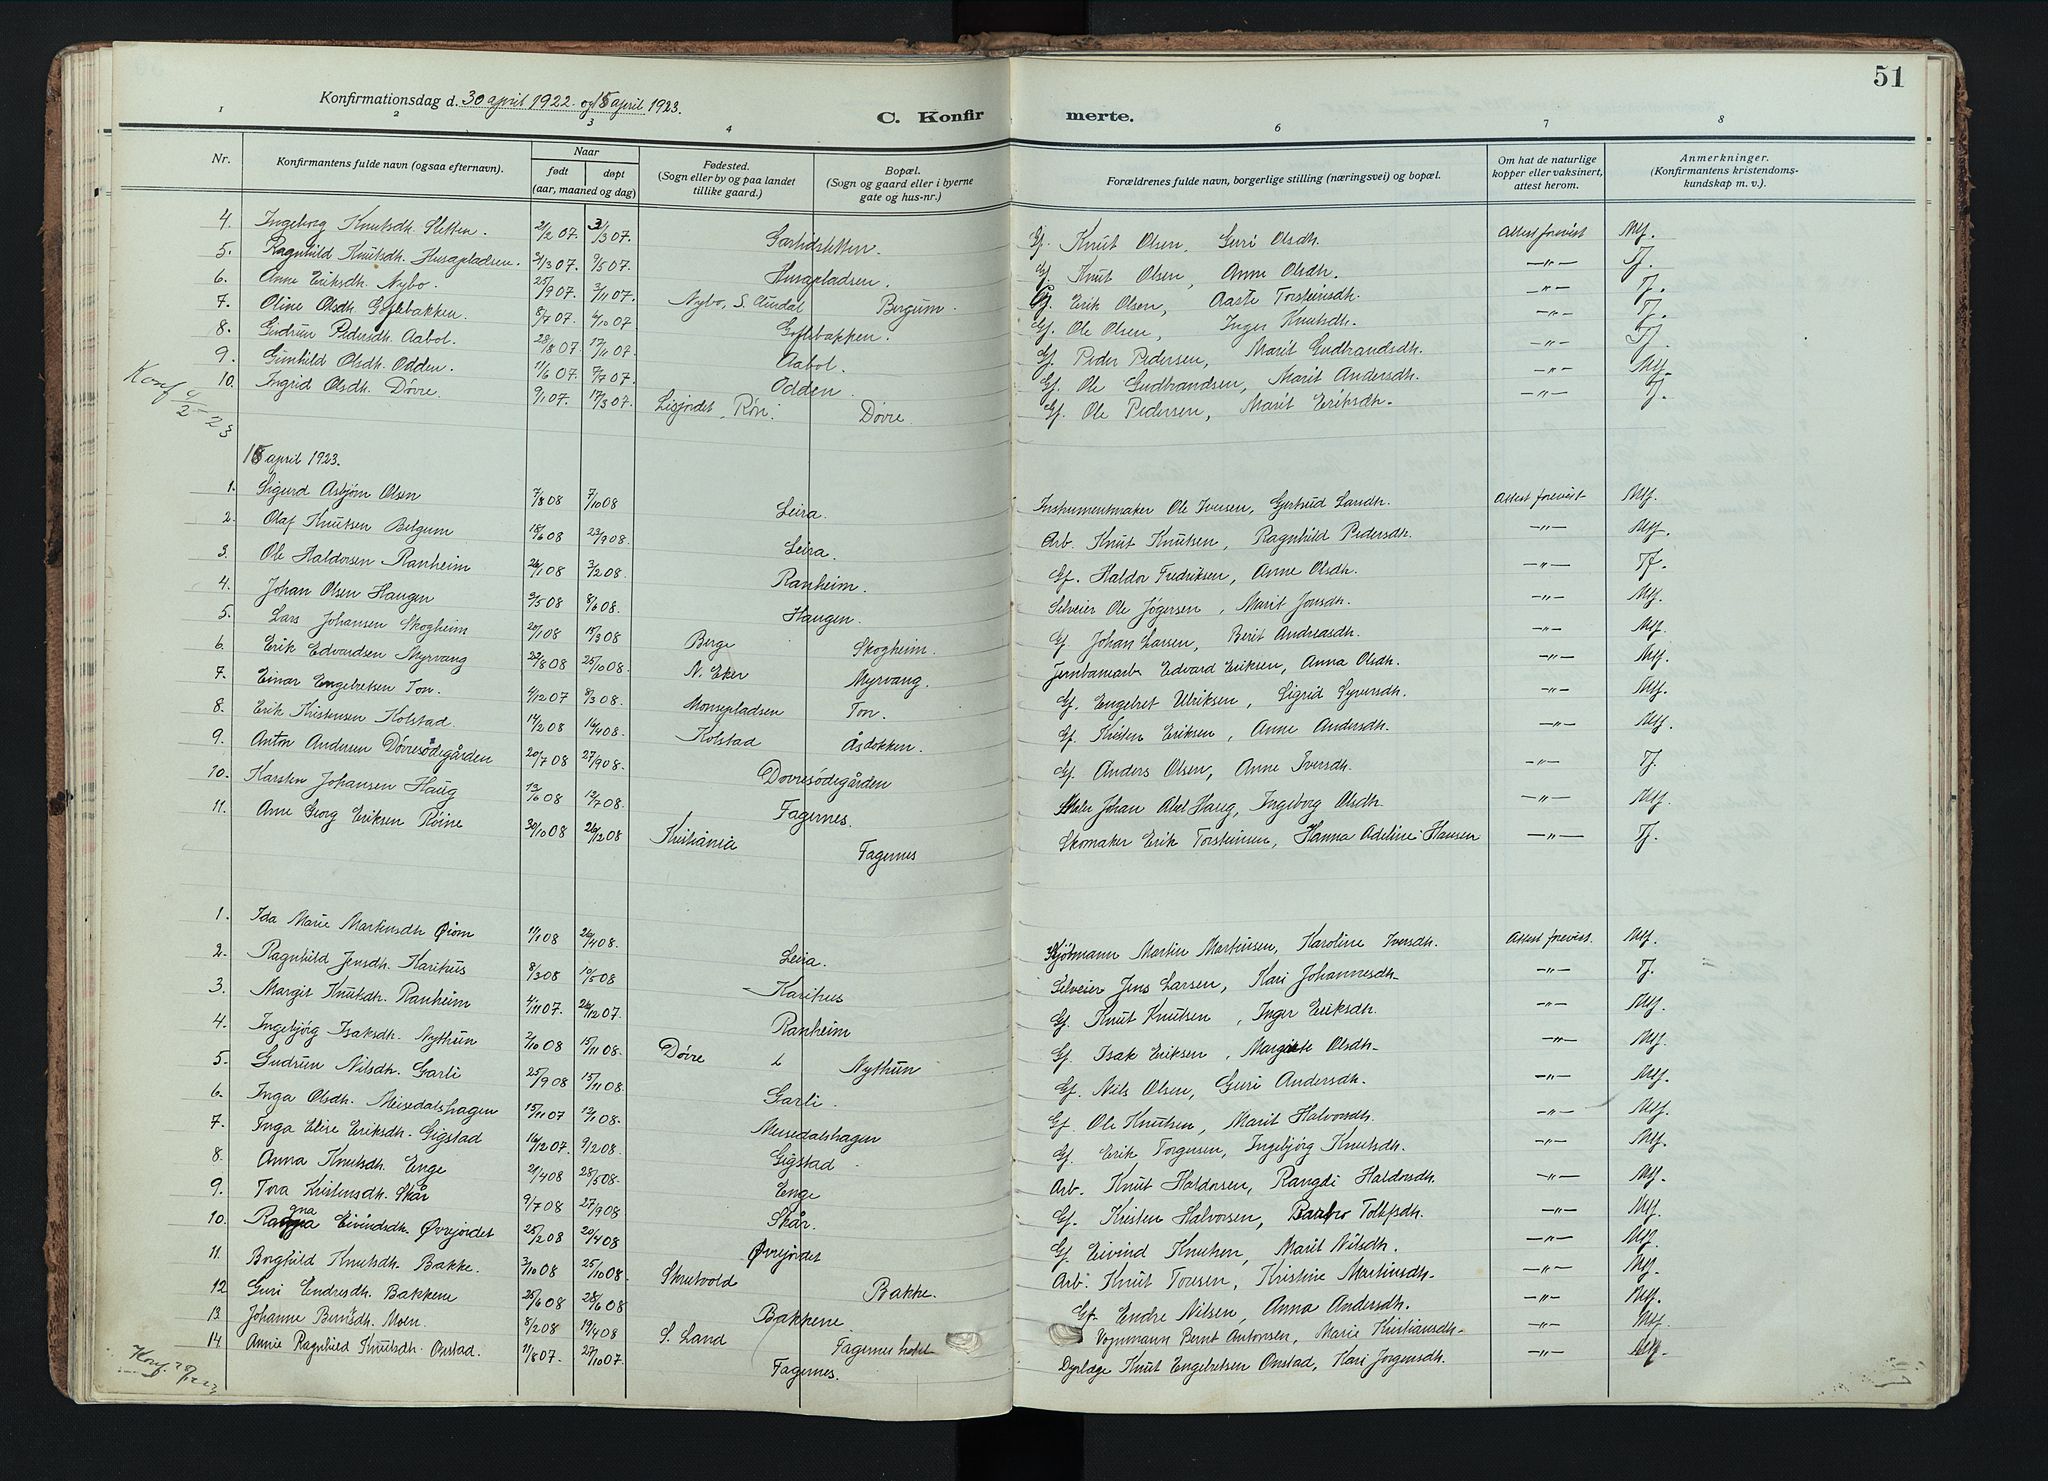 51
Konfirmationsdag d. 30 april 1922 og 15 april 1923.
C. Konfirmerte.
1 2 3 4 6 7 8
Nr. Konfirmantens fulde navn (ogsaa efternavn). Naar født døpt (aar, maaned og dag) Fødested. (Sogn eller by og paa landet tillike gaard.) Bopæl. (Sogn og gaard eller i byerne gate og hus-nr.) Forældrenes fulde navn, borgerlige stilling (næringsvei) og bopæl. Om hat de naturlige kopper eller vaksinert, attest herom. Anmerkninger. (Konfirmantens kristendomskundskap m. v.).
4. Ingeborg Knutsdh. Sletten. 2/2 07. 3/3 07. Garlidsletten. Gf. Knut Olsen, Guri Olsdh. Attest forevist Mtf.
5. Ragnhild Knutsdh. Husapladsen. 2/3 07. 9/5 07. Husapladsen. Gf. Knut Olsen, Anne Olsdh. —"— Tf.
6. Anne Eriksdh. Nybo. 25/9 07. 3/11 07. Nybo, S. Aurdal Bergum. Gf. Erik Olsen, Aaste Torsteinsdh. —"— Tf.
7. Oline Olsdh. Goflebakken. 8/7 07. 6/10 07 Goflebakken. Gf. Ole Olsen, Inger Knutsdh. —"— Tf.
8. Gudrun Pedersdh. Aabol. 28/8 07. 17/11 07. Aabol. Gf. Peder Pedersen, Marit Gudbrandsdh. —"— Tf.
9. Gunhild Olsdh. Odden. 11/6 07. 7/7 07. Odden. Gf. Ole Gudbrandsen, Marit Andersdh. —"— Mtf.
Konf 4/2 - 23 10. Ingrid Olsdh. Døvre. 9/1 07. 17/3 07. Lisjordet, Røn. Døvre. Gf. Ole Pedersen, Marit Eriksdh. —"— Tf.
15 april 1923.
1. Sigurd Asbjørn Olsen 7/8 08 7/10 08 Leira. Instrumentmaker Ole Iversen, Gertrud Larsdh. Attest forevist Mtf.
2. Olaf Knutsen Belgum 18/6 08 23/9 08. Leira. Arb. Knut Knutsen, Ragnhild Pedersdh. —"— Mtf.
3. Ole Haldorsen Ranheim 26/1 08 3/2 08. Ranheim. Gf. Haldor Fredriksen, Anne Olsdh. —"— Tf.
4. Johan Olsen Haugen 9/5 08 8/6 08. Haugen. Selveier Ole Jøgersen, Marit Jonsdh. —"— Mtf.
5. Lars Johansen Skogheim 20/1 08 15/3 08 Berge Skogheim. Gf. Johan Larsen, Berit Andreasdh. —"— Mtf.
6. Erik Edvardsen Myrvang 22/8 08 25/10 08. N. Eker Myrvang. Jernbanearb. Edvard Eriksen, Anna Olsdh. —"— Mtf.
7. Einar Engebretsen Ton. 4/12 07 8/3 08. Monsepladsen Ton. Gf. Engebret Ulriksen, Sigrid Syversdh. —"— Mtf.
8. Erik Kristensen Kolstad. 14/2 08 16/4 08. Kolstad Åsdokken. Gf. Kristen Eriksen, Anne Andersdh. —"— Mtf.
9. Anton Andersen Dövresödegården 20/7 08 27/9 08. Dövresödegården Gf. Anders Olsen, Anne Iversdh. —"— Tf.
10. Karsten Johansen Haug 12/6 08 12/7 08. Fagernes. Maler Johan Axel Haug, Ingeborg Olsdh. —"— Mtf.
11. Arne Georg Eriksen Röine 30/10 08 26/12 08 Kristiania Fagernes Skomaker Erik Torsteinsen, Hanna Adeline Hansen —"— Tf.
1. Ida Marie Martinsdh. Øiom 11/1 08 26/4 08. Leira. Martin Martinsen, Karoline Iversdh. Attest forevist. Mtf.
2. Ragnhild Jensdh. Karihus 8/3 08 10/5 08 Karihus Selveier Jens Larsen, Kari Johannesdh. —"— Tf.
3. Margit Knutsdh. Ranheim 4/11 07 26/12 07. Ranheim Gf. Knut Knutsen, Inger Eriksdh. —"— Mtf.
4. Ingebjörg Isaksdh. Nythun 2/10 08 15/11 08. Døvre Nythun Gf. Isak Eriksen, Margit Olsdh. —"— Mtf.
5. Gudrun Nilsdh. Garli 25/9 08 15/11 08. Garli. Gf. Nils Olsen, Guri Andersdh. —"— Mtf.
6. Inga Olsdh. Meisedalshagen 15/11 07 12/1 08. Meisedalshagen Gf. Ole Knutsen, Marit Halvorsdh. —"— Mtf.
7. Inga Elise Eriksdh. Gigstad 16/12 07. 9/2 08. Gigstad Gf. Erik Torgersen, Ingebjörg Knutsdh. —"— Mtf.
8. Anna Knutsdh. Enge 21/4 08 28/5 08. Enge Arb. Knut Haldorsen, Rangdi Haldorsdh. —"— Mtf.
9. Tora Kristensdh. Skår 9/7 08 27/9 08 Skår. Gf. Kristen Halvorsen, Barbro Tolkfsdh. —"— Mtf.
10. Ragna Eivindsdh. Øvrejordet 25/2 08 20/4 08 Øvrejordet Gf. Eivind Knutsen, Marit Nilsdh. —"— Mtf.
11. Borghild Knutsdh. Bakke. 3/10 08 25/10 08 Skrutvold Bakke. Arb. Knut Tovsen, Kristine Martinsdh. —"— Mtf.
12 Guri Endresdh. Bakkene 25/6 08 28/6 08 Bakkene Gf. Endre Nilsen, Anna Andersdh. —"— Mtf.
13. Johanne Berntsdh. Moen. 8/2 08 19/4 08 S. Land Fagernes hotel Vognmann Bernt Antonsen, Marie Kristiansdh. —"— Mtf.
Konf. 14. Annie Ragnhild Knutsdh. Onstad. 11/8 07. 27/10 07. Fagernes. Dyrlæge Knut Engebretsen Onstad, Kari Jørgensdh. —"— Mtf.